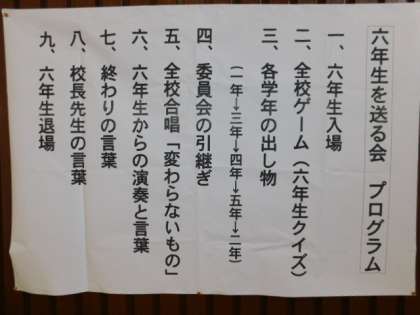 六年生を送る会 プログラム
一、六年生入場
二、全校ゲーム（六年生クイズ）
三、各学年の出し物
（一年→三年→四年→五年→二年）
四、委員会の引継ぎ
五、全校合唱「変わらないもの」
六、六年生からの演奏と言葉
七、終わりの言葉
八、校長先生の言葉
九、六年生退場